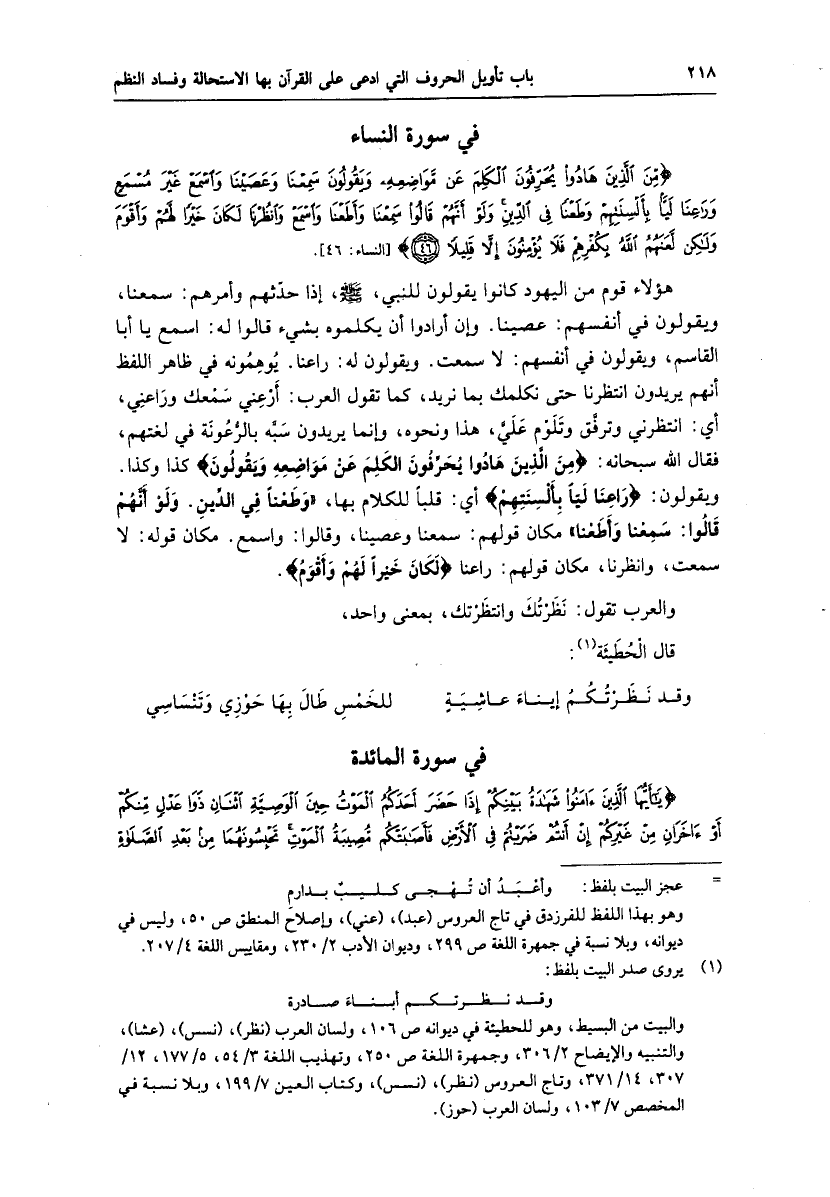 ٢١٨ باب تأويل الحروف التي ادعى على القرآن بها الاستحالة وفساد النظم
في سورة النساء
﴿مِّنَ ٱلَّذِينَ هَادُواْ يُحَرِّفُونَ ٱلۡكَلِمَ عَن مَّوَاضِعِهِۦ وَيَقُولُونَ سَمِعۡنَا وَعَصَيۡنَا وَٱسۡمَعۡ غَيۡرَ مُسۡمَعٖ
وَرَٰعِنَا لَيَّۢا بِأَلۡسِنَتِهِمۡ وَطَعۡنٗا فِي ٱلدِّينِۚ وَلَوۡ أَنَّهُمۡ قَالُواْ سَمِعۡنَا وَأَطَعۡنَا وَٱسۡمَعۡ وَٱنظُرۡنَا لَكَانَ خَيۡرٗا لَّهُمۡ وَأَقۡوَمَ
وَلَٰكِن لَّعَنَهُمُ ٱللَّهُ بِكُفۡرِهِمۡ فَلَا يُؤۡمِنُونَ إِلَّا قَلِيلٗا ٤٦﴾ [النساء: ٤٦].
هؤلاء قوم من اليهود كانوا يقولون للنبي، ﷺ، إذا حدّثهم وأمرهم: سمعنا،
ويقولون في أنفسهم: عصينا. وإن أرادوا أن يكلموه بشيء قالوا له: اسمع يا أبا
القاسم، ويقولون في أنفسهم: لا سمعت. ويقولون له: راعنا. يُوهِمُونه في ظاهر اللفظ
أنهم يريدون انتظرنا حتى نكلمك بما نريد، كما تقول العرب: أَرْعِني سَمْعك ورَاعنِي،
أي: انتظرني وترفَّق وتَلَوَّم عَلَيَّ، هذا ونحوه، وإنما يريدون سَبَّه بالرُّعُونَة في لغتهم،
فقال الله سبحانه: ﴿مِنَ الَّذِينَ هَادُوا يُحَرِّفُونَ الكَلِمَ عَنْ مَوَاضِعِهِ وَيَقُولُونَ﴾ كذا وكذا.
ويقولون: ﴿رَاعِنَا لَيَاً بِأَلْسِنَتِهِمْ﴾ أي: قلباً للكلام بها، «وَطَعْناً فِي الدِّينِ. وَلَوْ أَنَّهُمْ
قَالُوا: سَمِعْنا وَأَطَعْنا» مكان قولهم: سمعنا وعصينا، وقالوا: واسمع. مكان قوله: لا
سمعت، وانظرنا، مكان قولهم: راعنا ﴿لَكَانَ خَيْراً لَهُمْ وَأَقْوَمُ﴾.
والعرب تقول: نَظَرْتُكَ وانتظَرْتك، بمعنى واحد،
قال الْحُطَيئَة(١):
وقد نَظَرْتُكُمُ إينَاءَ عاشِيَةٍ للخَمْسِ طَالَ بِهَا حَوْزِي وَتَنْسَاسِي
في سورة المائدة
﴿يَٰٓأَيُّهَا ٱلَّذِينَ ءَامَنُواْ شَهَٰدَةُ بَيۡنِكُمۡ إِذَا حَضَرَ أَحَدَكُمُ ٱلۡمَوۡتُ حِينَ ٱلۡوَصِيَّةِ ٱثۡنَانِ ذَوَا عَدۡلٖ مِّنكُمۡ
أَوۡ ءَاخَرَانِ مِنۡ غَيۡرِكُمۡ إِنۡ أَنتُمۡ ضَرَبۡتُمۡ فِي ٱلۡأَرۡضِ فَأَصَٰبَتۡكُم مُّصِيبَةُ ٱلۡمَوۡتِۚ تَحۡبِسُونَهُمَا مِنۢ بَعۡدِ ٱلصَّلَوٰةِ
= عجز البيت بلفظ: وأعْبَدُ أن تُهْجى كليبٌ بدارمِ
وهو بهذا اللفظ للفرزدق في تاج العروس (عبد)، (عني)، وإصلاح المنطق ص ٥٠، وليس في
ديوانه، وبلا نسبة في جمهرة اللغة ص ٢٩٩، وديوان الأدب ٢/ ٢٣٠، ومقاييس اللغة ٤/ ٢٠٧.
(١) يروى صدر البيت بلفظ:
وقد نظرتكم أبناءَ صادرة
والبيت من البسيط، وهو للحطيئة في ديوانه ص ١٠٦، ولسان العرب (نظر)، (نسس)، (عشا)،
والتنبيه والإيضاح ٢/ ٣٠٦، وجمهرة اللغة ص ٢٥٠، وتهذيب اللغة ٣/ ٥٤، ٥/ ١٧٧، ١٢/
٣٠٧، ١٤/ ٣٧١، وتاج العروس (نظر)، (نسس)، وكتاب العين ٧/ ١٩٩، وبلا نسبة في
المخصص ٧/ ١٠٣، ولسان العرب (حوز).